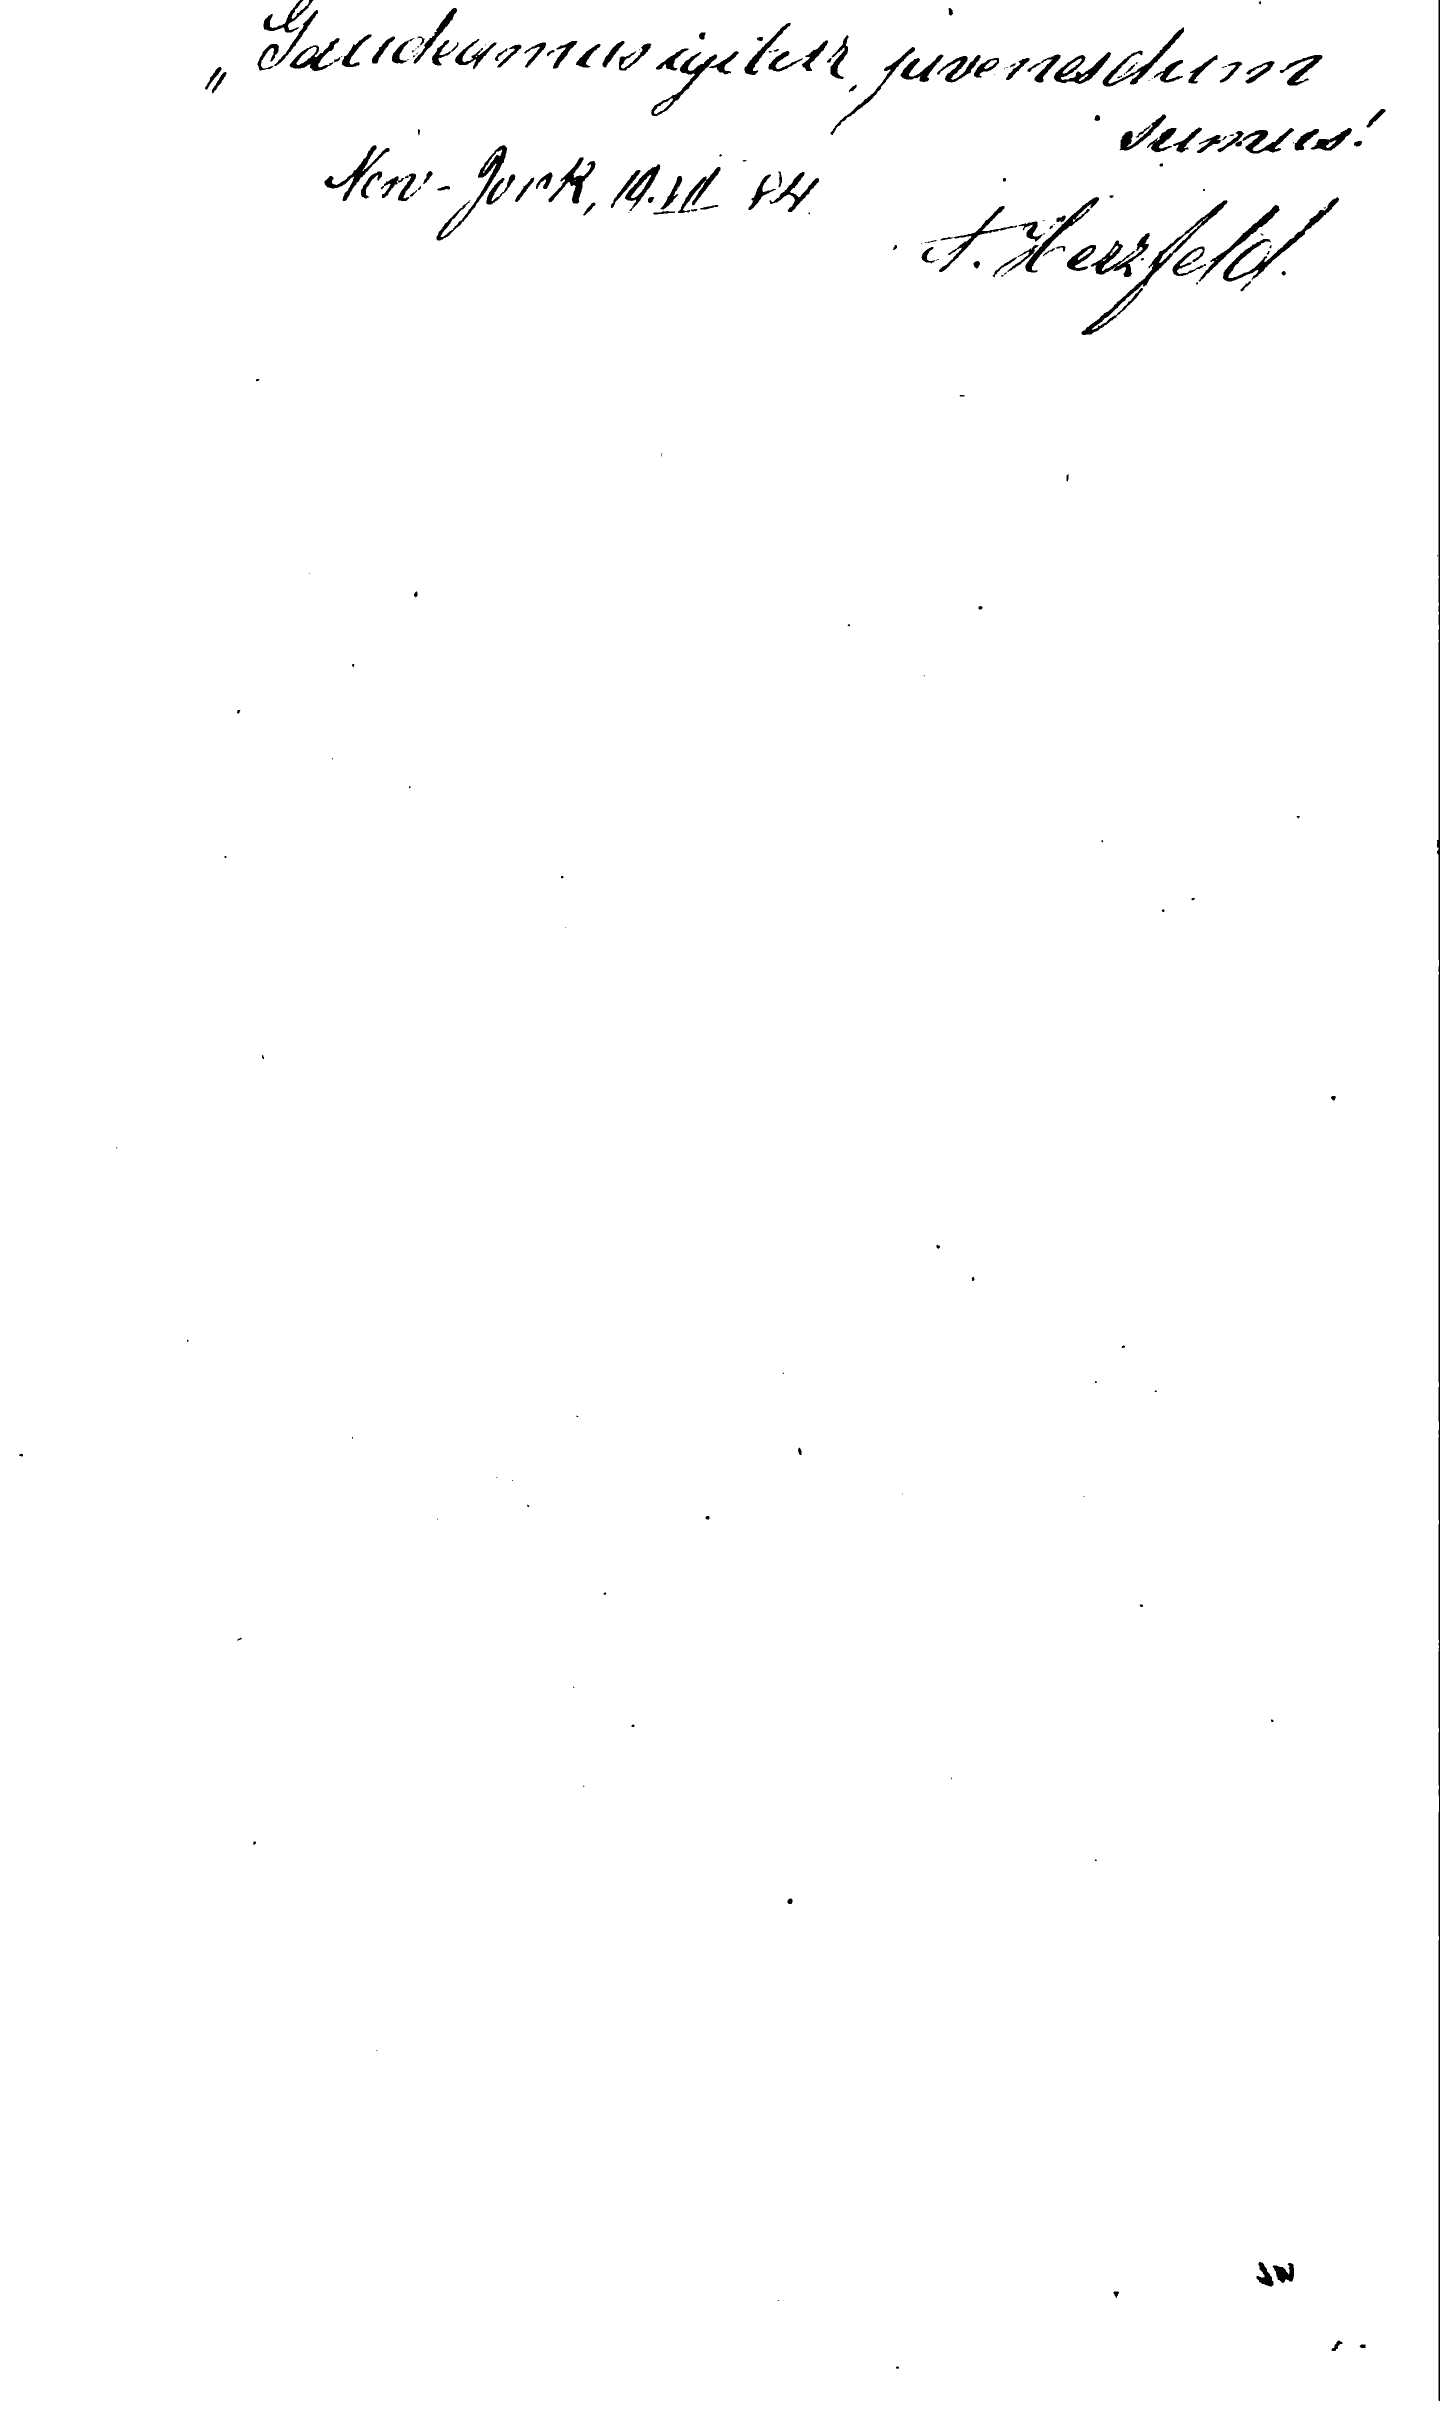 „Gaudeamus igitur, juvenes dum
sumus!
New-York, 19. VII 84
A. Herzfeld.